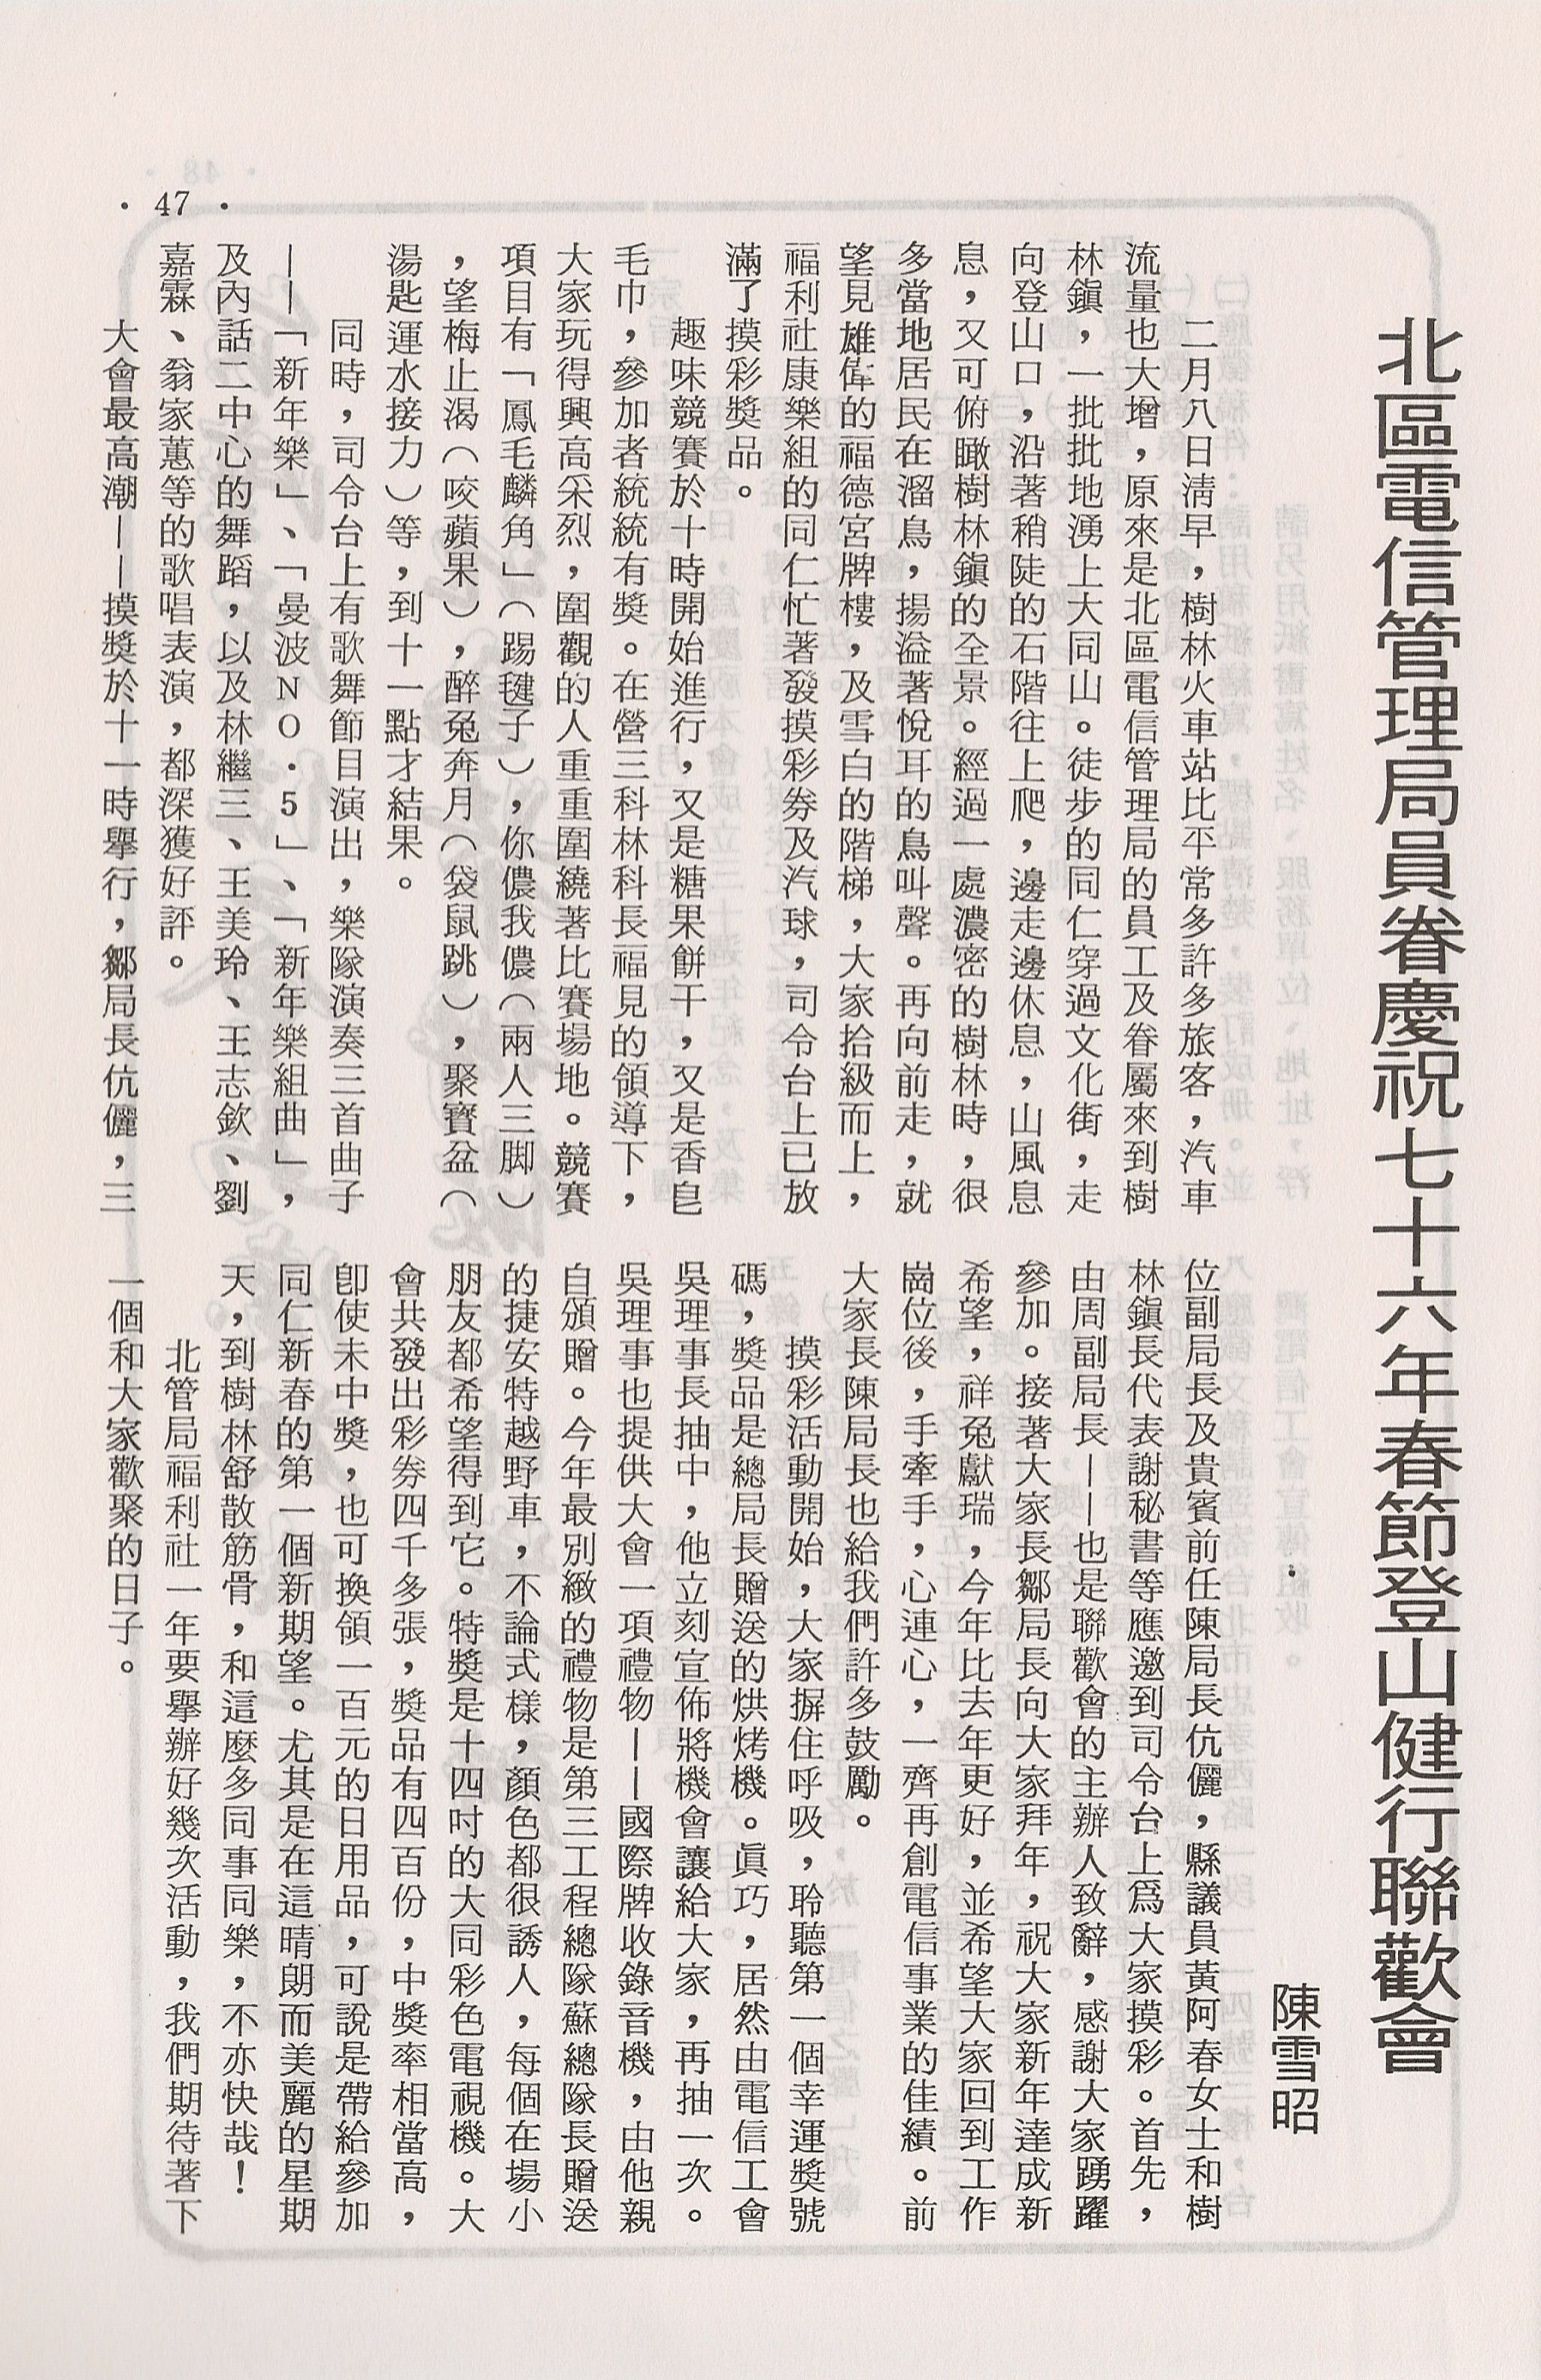 北區電信管理局員眷慶祝七十六年春節登山健行聯歡會
陳雪昭
二月八日淸早，樹林火車站比平常多許多旅客，汽車
流量也大增，原來是北區電信管理局的員工及眷屬來到樹
林鎭，一批批地湧上大同山。徒步的同仁穿過文化街，走
向登山口，沿著稍陡的石階往上爬，邊走邊休息，山風息
息，又可俯瞰樹林鎭的全景。經過一處濃密的樹林時，很
多當地居民在溜鳥，揚溢著悅耳的鳥叫聲。再向前走，就
望見雄偉的福德宮牌樓，及雪白的階梯，大家拾級而上，
福利社康樂組的同仁忙著發摸彩券及汽球，司令台上已放
滿了摸彩獎品。
趣味競賽於十時開始進行，又是糖果餅干，又是香皀
毛巾，參加者統統有獎。在營三科林科長福見的領導下，
大家玩得興高采烈，圍觀的人重重圍繞著比賽場地。競賽
項目有「鳳毛麟角」（踢毽子），你儂我儂（兩人三脚）
，望梅止渴（咬蘋果），醉兔奔月（袋鼠跳），聚寶盆（
湯匙運水接力）等，到十一點才結果。
同時，司令台上有歌舞節目演出，樂隊演奏三首曲子
——「新年樂」、「曼波NO．5」、「新年樂組曲」，
及內話二中心的舞蹈，以及林繼三、王美玲、王志欽、劉
嘉霖、翁家蕙等的歌唱表演，都深獲好評。
大會最高潮——摸獎於十一時舉行，鄒局長伉儷，三
位副局長及貴賓前任陳局長伉儷，縣議員黃阿春女士和樹
林鎭長代表謝秘書等應邀到司令台上爲大家摸彩。首先，
由周副局長——也是聯歡會的主辦人致辭，感謝大家踴躍
參加。接著大家長鄒局長向大家拜年，祝大家新年達成新
希望，祥兔獻瑞，今年比去年更好，並希望大家回到工作
崗位後，手牽手，心連心，一齊再創電信事業的佳績。前
大家長陳局長也給我們許多鼓勵。
摸彩活動開始，大家摒住呼吸，聆聽第一個幸運獎號
碼，獎品是總局長贈送的烘烤機。眞巧，居然由電信工會
吳理事長抽中，他立刻宣佈將機會讓給大家，再抽一次。
吳理事也提供大會一項禮物——國際牌收錄音機，由他親
自頒贈。今年最別緻的禮物是第三工程總隊蘇總隊長贈送
的捷安特越野車，不論式樣，顏色都很誘人，每個在場小
朋友都希望得到它。特獎是十四吋的大同彩色電視機。大
會共發出彩券四千多張，獎品有四百份，中獎率相當高，
卽使未中獎，也可換領一百元的日用品，可說是帶給參加
同仁新春的第一個新期望。尤其是在這晴朗而美麗的星期
天，到樹林舒散筋骨，和這麼多同事同樂，不亦快哉！
北管局福利社一年要舉辦好幾次活動，我們期待著下
一個和大家歡聚的日子。
· 47 ·